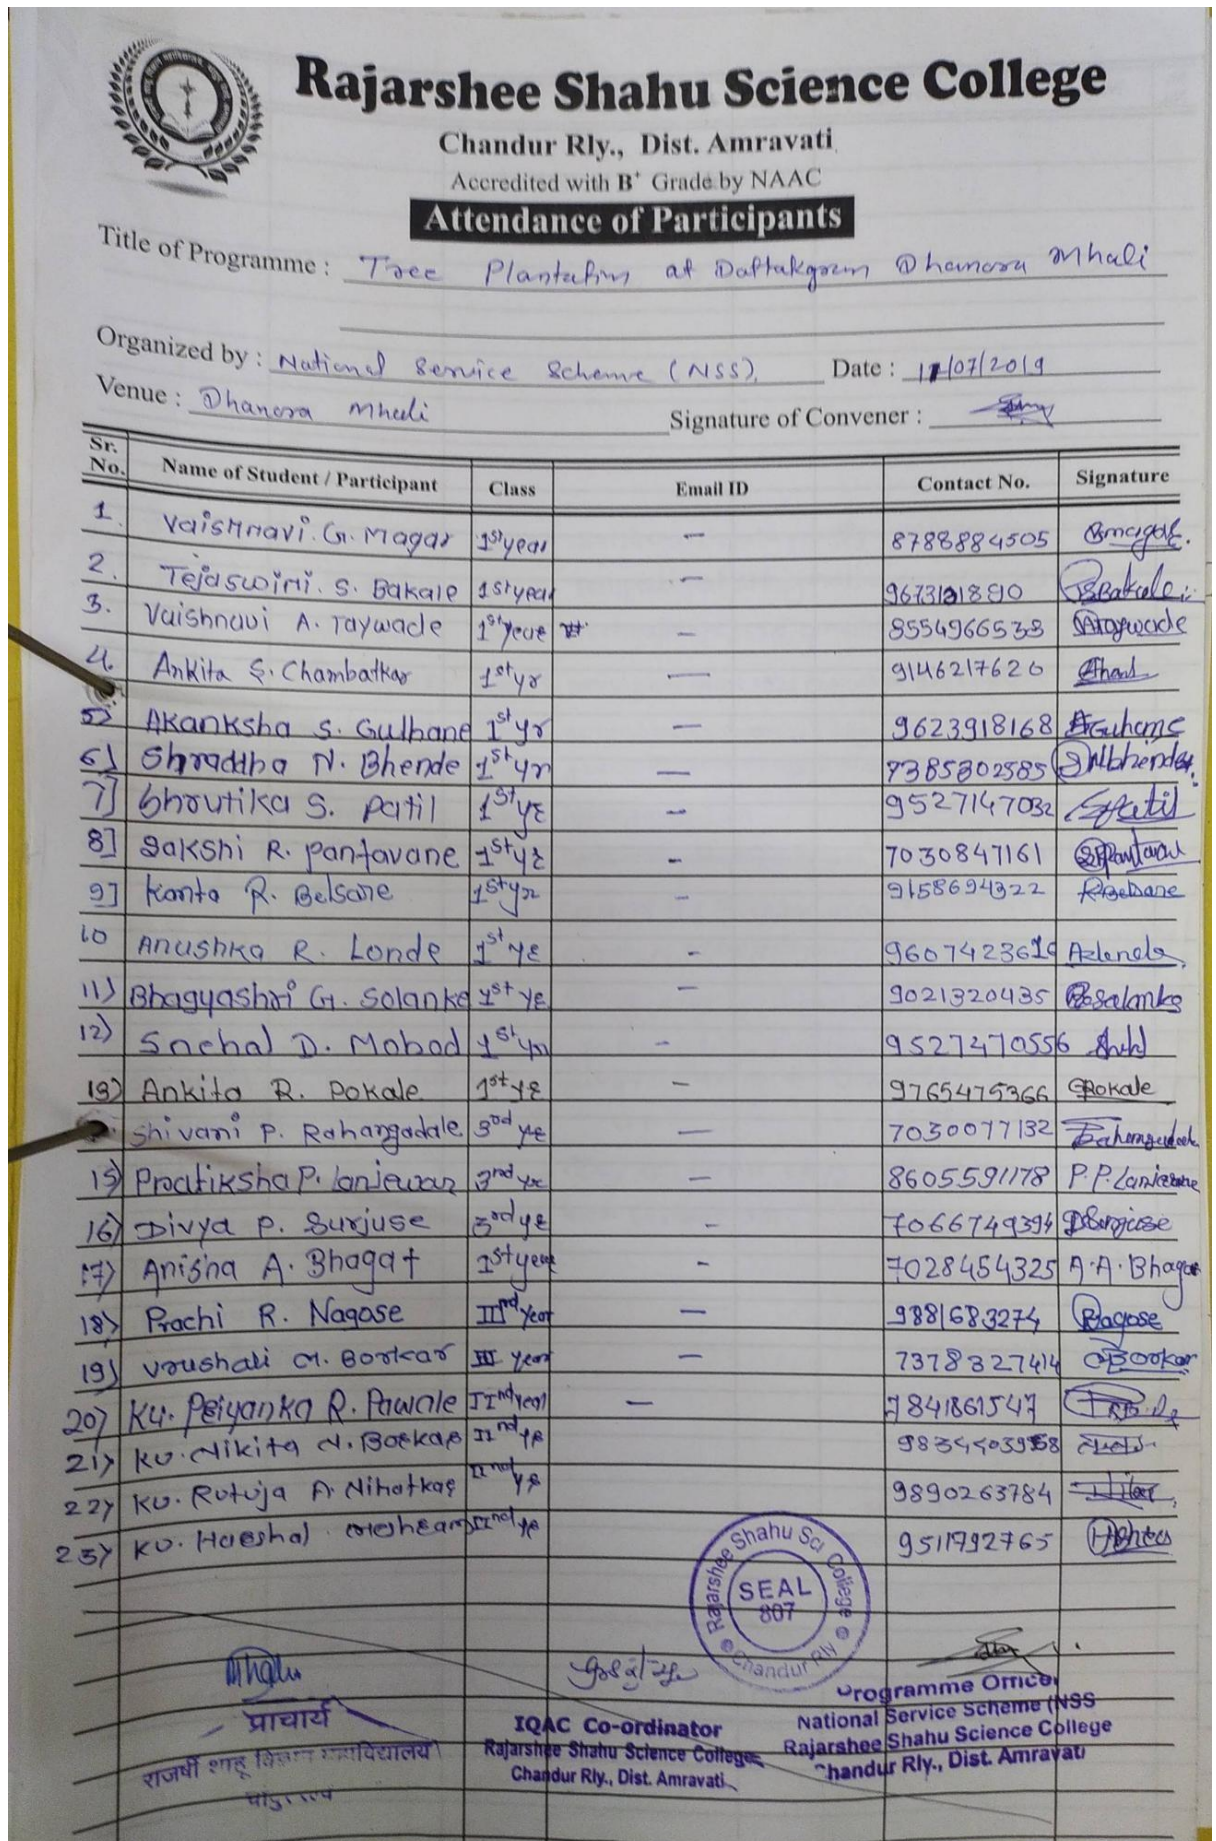 Rajarshee Shahu Science College
Chandur Rly., Dist. Amravati
Accredited with B+ Grade by NAAC
Attendance of Participants
Title of Programme : Tree Plantation at Dattakgram Dhanora Mhali
Organized by : National Service Scheme (NSS). Date : 11/07/2019
Venue : Dhanora Mhali Signature of Convener :
Sr. No. Name of Student / Participant Class Email ID Contact No. Signature
1. Vaishnavi. G. Magar 1st year — 8788884505
2. Tejaswini. S. Bakale 1st year — Bakale
3. Vaishnavi A. Taywade 1st year — 8554966538 Ataywade
4. Ankita S. Chambatkar 1st yr — 9146217620
5) Akanksha S. Gulhane 1st yr — 9623918168
6] Shraddha N. Bhende 1st yr — 7385302585
7] Shrutika S. Patil 1st yr — 9527147032 Spatil
8] Sakshi R. Pantavane 1st yr - 7030847161
9] Kanta R. Belsare 1st yr - 9158694322
10 Anushka R. Londe 1st yr -
11) Bhagyashri G. Solanke 1st yr — 9021320435
12) Snehal D. Mobad 1st yr - 9527470556
13) Ankita R. Pokale 1st yr — 9765475366
Shivani P. Rahangadale 3rd yr — 7030077132
15) Pratiksha P. Lanjewar 3rd yr — 8605591178 P.P. Lanjewar
16) Divya P. Surjuse 3rd yr - 7066749394 DSurjuse
17) Anisha A. Bhagat 1st year - 7028454325 A.A. Bhagat
18) Prachi R. Nagose IInd year — 9881683274
19) Vrushali M. Borkar III year — 7378327414 Borkar
20) Ku. Priyanka R. Pawale IInd year — 7841861547
21) Ku. Nikita N. Borkar IInd yr
22) Ku. Rutuja A. Nihatkar IInd yr 9890263784
23) Ku. Harshal Meshram IInd yr 9511792765
Rajarshee Shahu Sci. College
SEAL
807
Chandur Rly
प्राचार्य
राजर्षी शाहू विज्ञान महाविद्यालय
IQAC Co-ordinator
Rajarshee Shahu Science College
Chandur Rly., Dist. Amravati.
Programme Officer
National Service Scheme (NSS
Rajarshee Shahu Science College
Chandur Rly., Dist. Amravati